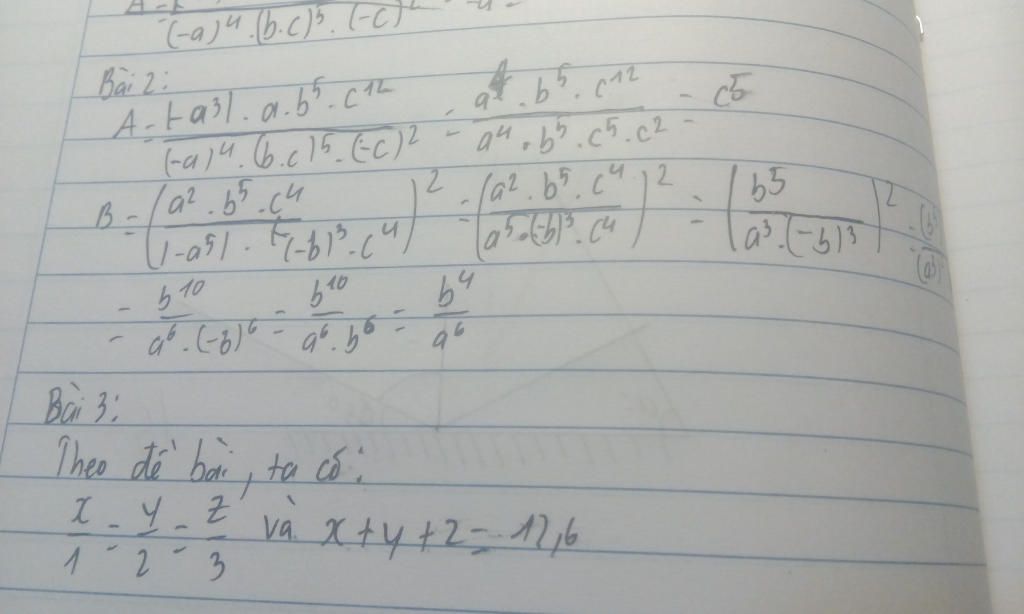 (-a)⁴.(b.c)⁵.(-c)
Bài 2:
A = |-a³|.a.b⁵.c¹² / (-a)⁴.(b.c)⁵.(-c)² = a⁴.b⁵.c¹² / a⁴.b⁵.c⁵.c² = c⁵
B = (a².b⁵.c⁴ / |-a⁵|.(-b)³.c⁴)² = (a².b⁵.c⁴ / a⁵.(-b)³.c⁴)² = (b⁵ / a³.(-b)³)²
= b¹⁰ / a⁶.(-b)⁶ = b¹⁰ / a⁶.b⁶ = b⁴ / a⁶
Bài 3:
Theo đề bài, ta có:
x/1 = y/2 = z/3 và x+y+z = 12,6